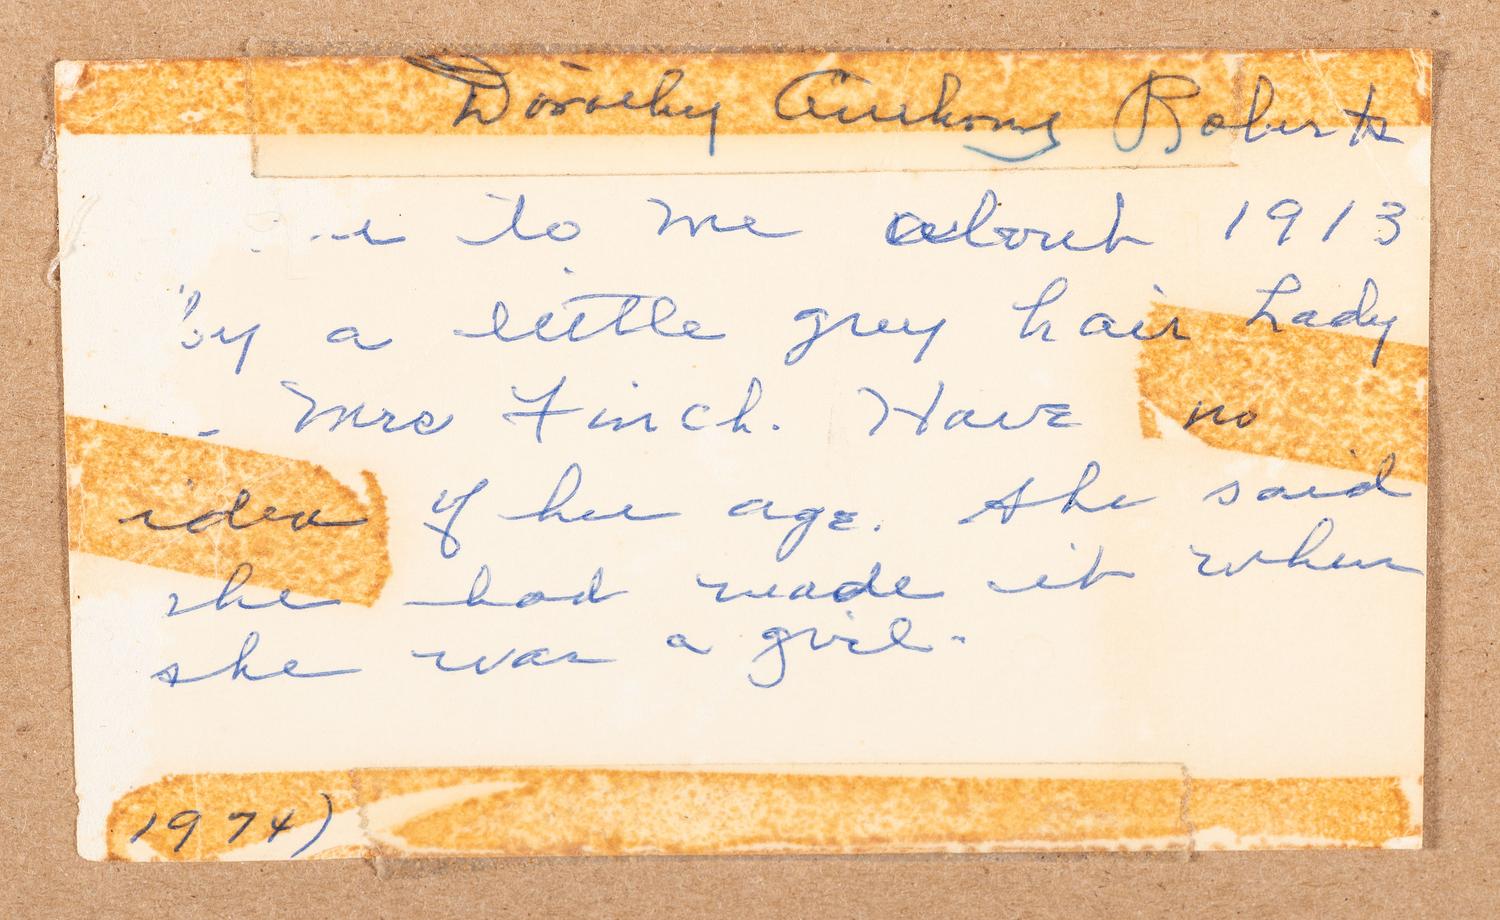 Dorothy Anthony Roberts
to me about 1913
by a little grey hair Lady
Mrs Finch. Have no
idea of her age. She said
she had made it when
she was a girl.
1974)